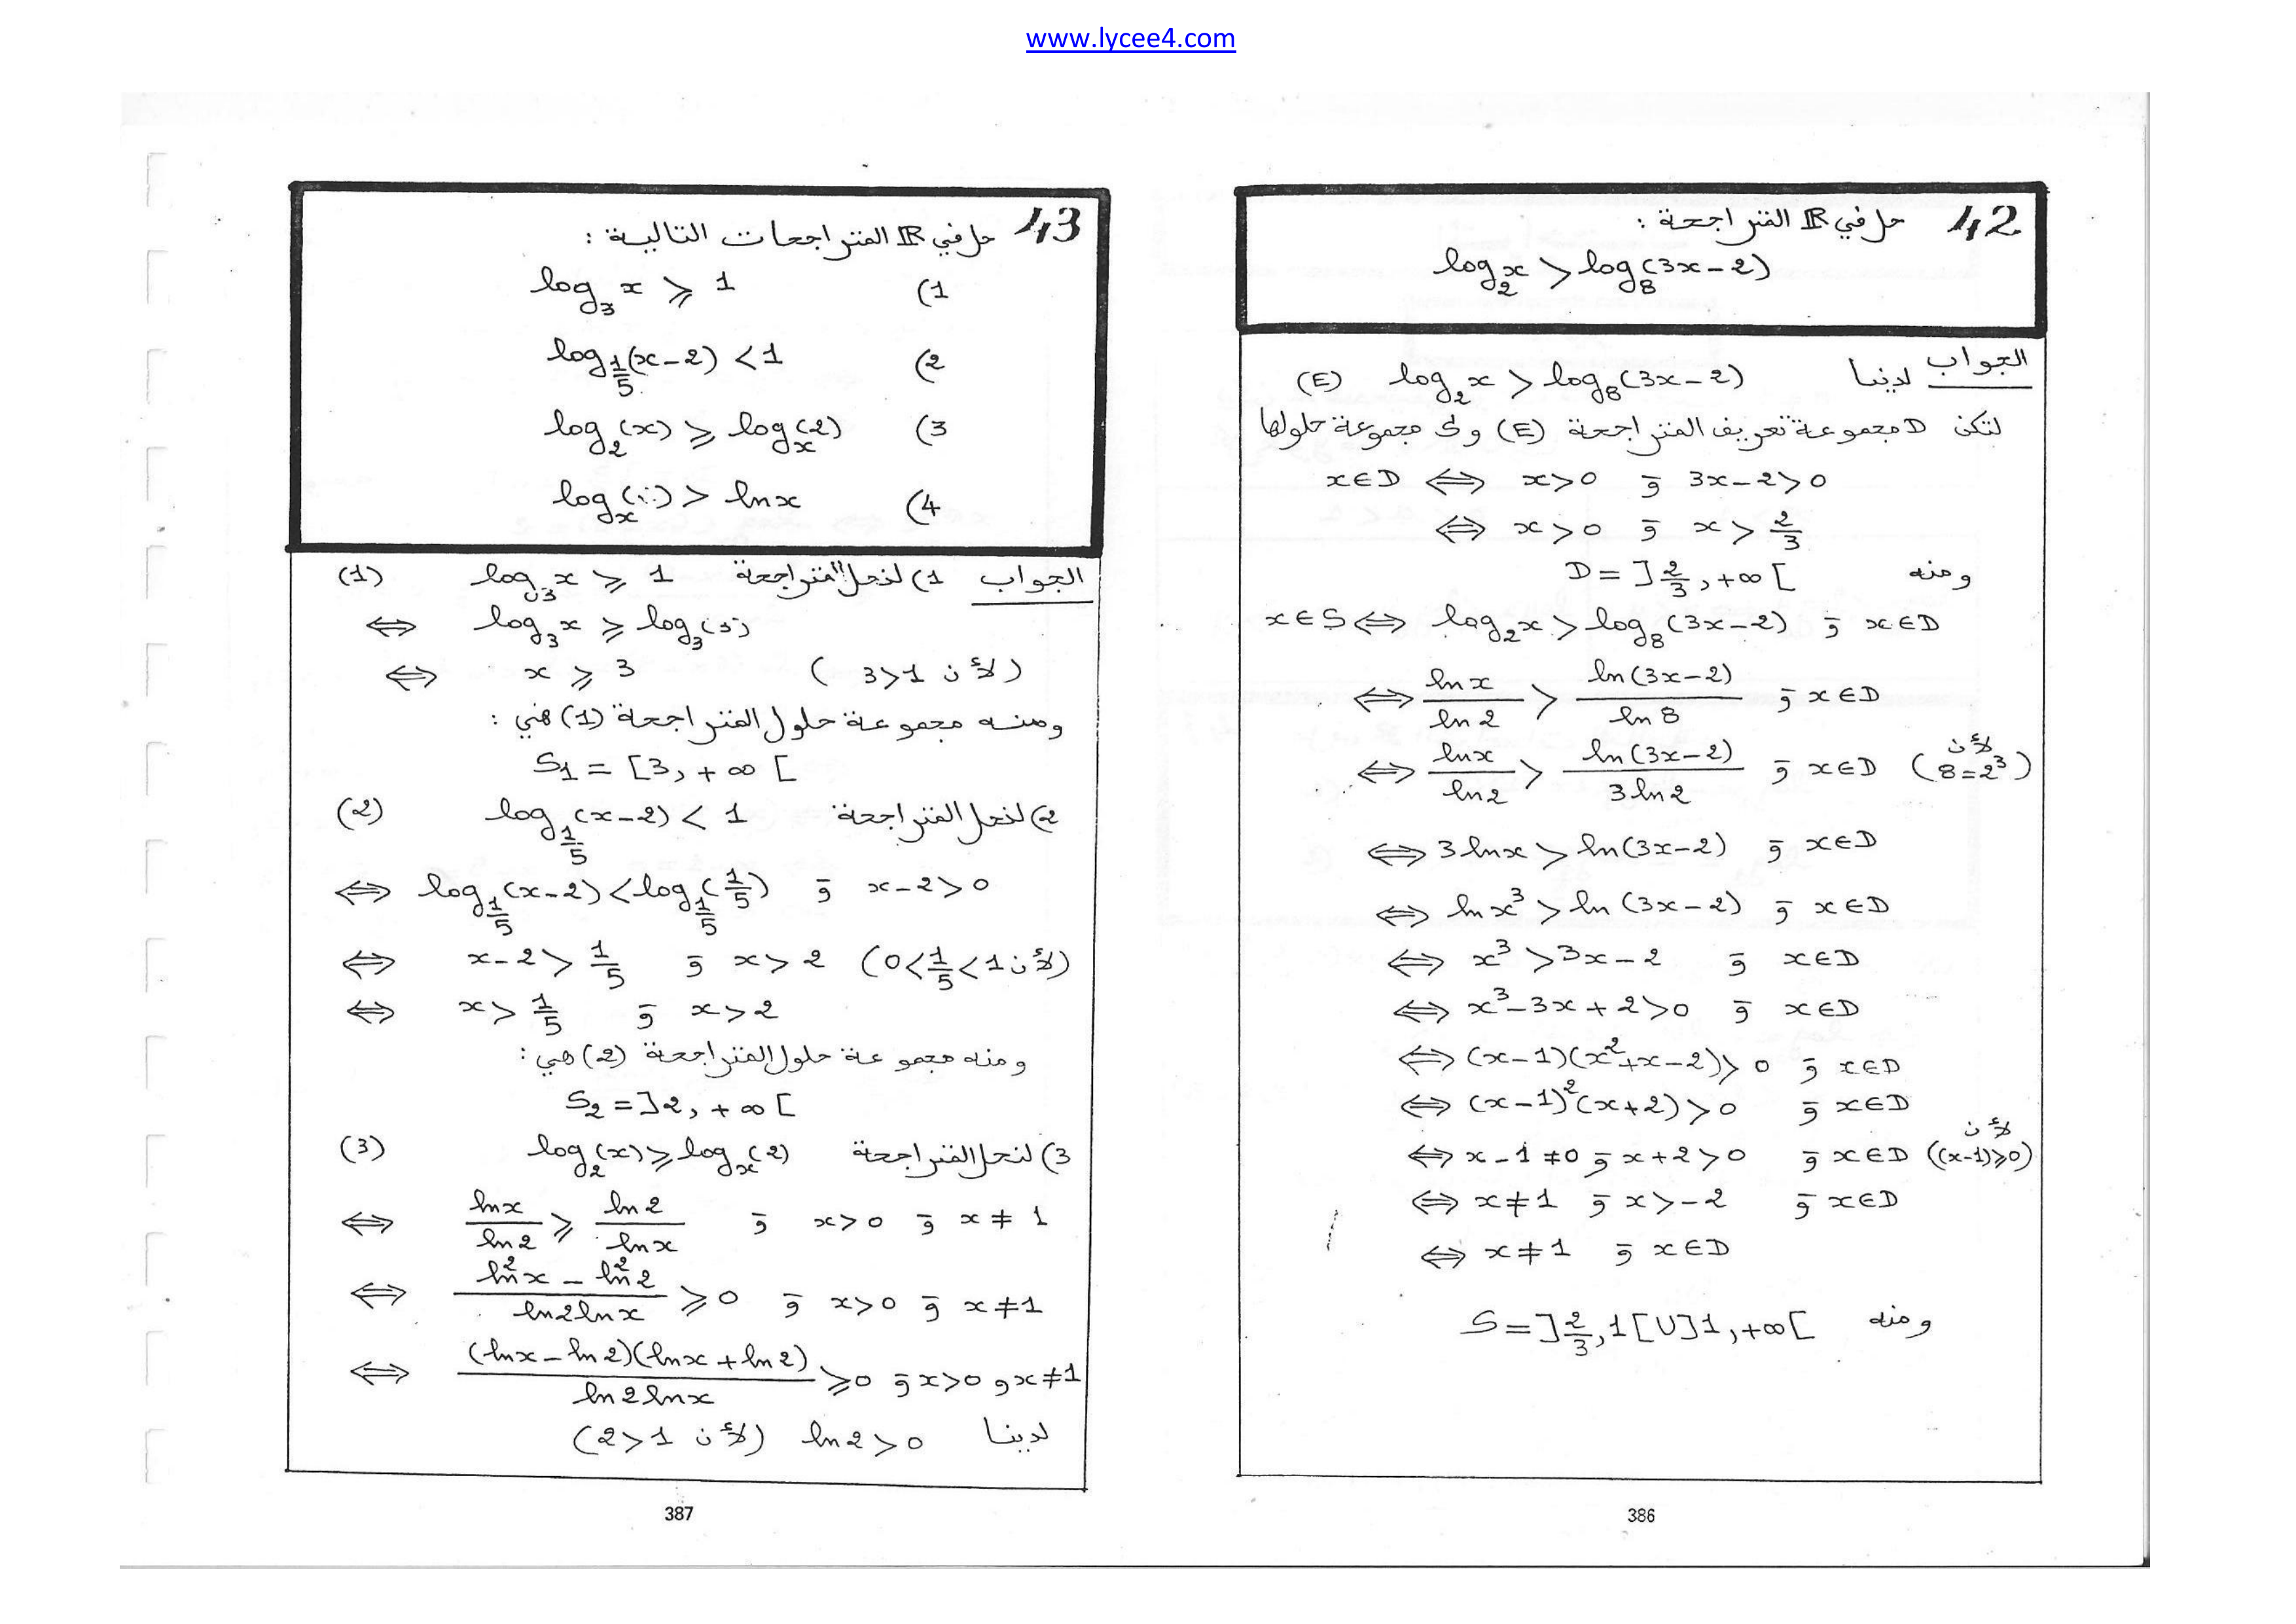 www.lycee4.com
42 حل في ℝ المتراجحة :
log₂x > log₈(3x-2)
الجواب لدينا log₂x > log₈(3x-2) (E)
لتكن D مجموعة تعريف المتراجحة (E) و S مجموعة حلولها
x∈D ⟺ x>0 و 3x-2>0
⟺ x>0 و x>2/3
ومنه D=]2/3,+∞[
x∈S ⟺ log₂x > log₈(3x-2) و x∈D
⟺ lnx/ln2 > ln(3x-2)/ln8 و x∈D
⟺ lnx/ln2 > ln(3x-2)/3ln2 و x∈D (لأن 8=2³)
⟺ 3lnx > ln(3x-2) و x∈D
⟺ lnx³ > ln(3x-2) و x∈D
⟺ x³ > 3x-2 و x∈D
⟺ x³-3x+2>0 و x∈D
⟺ (x-1)(x²+x-2)>0 و x∈D
⟺ (x-1)²(x+2)>0 و x∈D
⟺ x-1≠0 و x+2>0 و x∈D (لأن (x-1)≥0)
⟺ x≠1 و x>-2 و x∈D
⟺ x≠1 و x∈D
ومنه S=]2/3,1[U]1,+∞[
386
43 حل في ℝ المتراجحات التالية :
1) log₃x ≥ 1
2) log_{1/5}(x-2) < 1
3) log₂(x) ≥ log_x(2)
4) log_x > lnx
الجواب 1) لنحل المتراجحة log₃x ≥ 1 (1)
⟺ log₃x ≥ log₃(3)
⟺ x ≥ 3 (لأن 3>1)
ومنه مجموعة حلول المتراجحة (1) هي :
S₁=[3,+∞[
2) لنحل المتراجحة log_{1/5}(x-2) < 1 (2)
⟺ log_{1/5}(x-2) < log_{1/5}(1/5) و x-2>0
⟺ x-2>1/5 و x>2 (لأن 0<1/5<1)
⟺ x>1/5 و x>2
ومنه مجموعة حلول المتراجحة (2) هي :
S₂=]2,+∞[
3) لنحل المتراجحة log₂(x) ≥ log_x(2) (3)
⟺ lnx/ln2 ≥ ln2/lnx و x>0 و x≠1
⟺ (ln²x - ln²2)/(ln2lnx) ≥ 0 و x>0 و x≠1
⟺ (lnx-ln2)(lnx+ln2)/(ln2lnx) ≥ 0 و x>0 و x≠1
لدينا ln2>0 (لأن 2>1)
387